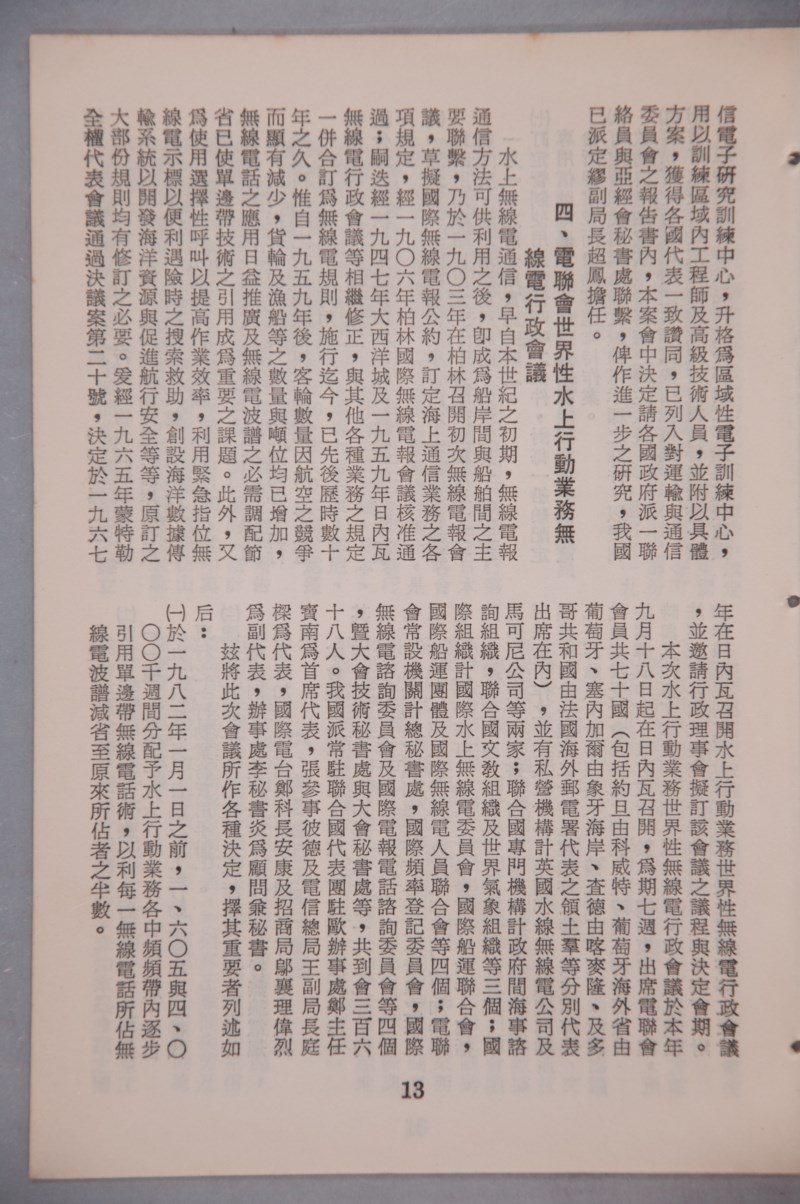 信電子研究訓練中心，升格爲區域性電子訓練中心，
用以訓練區域內工程師及高級技術人員，並附以具體
方案，獲得各國代表一致讚同，已列入對運輸與通信
委員會之報告書內，本案會中決定請各國政府派一聯
絡員與亞經會秘書處聯繫，俾作進一步之研究，我國
已派定繆副局長超鳳擔任。
四、電聯會世界性水上行動業務無
線電行政會議
水上無線電通信，早自本世紀之初期，無線電報
通信方法可供利用之後，卽成爲船岸間與船舶間之主
要聯繫，乃於一九〇三年在柏林召開初次無線電報會
議，草擬國際無線電報公約，訂定海上通信業務之各
項規定，經一九〇六年柏林國際無線電報會議核准通
過；嗣迭經一九四七年大西洋城及一九五九年日內瓦
無線電行政會議等相繼修正，與其他各種業務之規定
一併合訂爲無線電規則，施行迄今，已先後歷時數十
年之久。惟自一九五九年後，客輪數量因航空之競爭
而顯有減少，貨輪及漁船等之數量與噸位均已增加，
無線電話之應用日益推廣及無線電波譜之必需調配節
省已使單邊帶技術之引用成爲重要之課題。此外，又
爲使用選擇性呼叫以提高作業效率，利用緊急指位無
線電示標以便利遇險時之搜索救助，創設海洋數據傳
輸系統以開發海洋資源與促進航行安全等等，原訂之
大部份規則均有修訂之必要。爰經一九六五年蒙特勒
全權代表會議通過決議案第二十號，決定於一九六七
年在日內瓦召開水上行動業務世界性無線電行政會議
，並邀請行政理事會擬訂該會議之議程與決定會期。
本次水上行動業務世界性無線電行政會議於本年
九月十八日起在日內瓦召開，爲期七週，出席電聯會
會員共七十國（包括約旦由科威特、葡萄牙海外省由
葡萄牙、塞內加爾由象牙海岸、查德由喀麥隆、及多
哥共和國由法國海外郵電署代表之領土羣等分別代表
出席在內），並有私營機構計英國水線無線電公司及
馬可尼公司等兩家；聯合國專門機構計政府間海事諮
詢組織，聯合國文敎組織及世界氣象組織等三個；國
際組織計國際水上無線電委員會，國際船運聯合會，
國際船運團體及國際無線電人員聯合會等四個；電聯
會常設機關計總秘書處，國際頻率登記委員會，國際
無線電諮詢委員會及國際電報電話諮詢委員會等四個
，暨大會技術秘書處與大會秘書處等，共到會三百六
十八人。我國派常駐聯合國代表團駐歐辦事處鄭主任
寶南爲首席代表，張參事彼德及電信總局王副局長庭
樑爲代表，國際電台鄭科長安康及招商局鄔襄理偉烈
爲副代表，辦事處李秘書炎爲顧問兼秘書。
玆將此次會議所作各種決定，擇其重要者列述如
后：
㈠於一九八二年一月一日之前，一、六〇五與四、〇
〇〇千週間分配予水上行動業務各中頻頻帶內逐步
引用單邊帶無線電話術，以利每一無線電話所佔無
線電波譜減省至原來所佔者之半數。
13